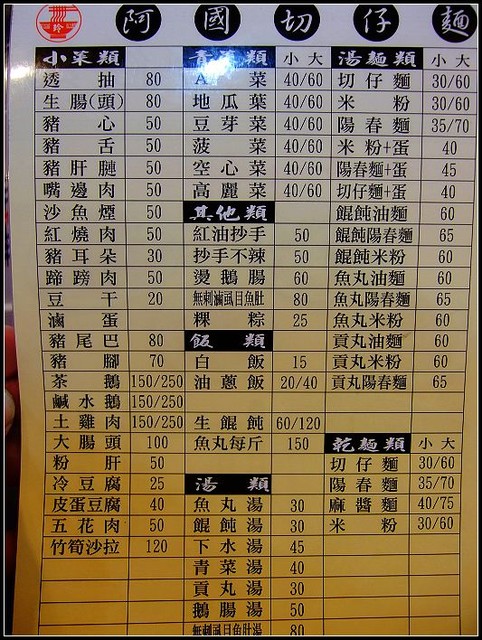 玲 阿國切仔麵
小菜類
透抽 80
生腸(頭) 80
豬心 50
豬舌 50
豬肝腱 50
嘴邊肉 50
沙魚煙 50
紅燒肉 50
豬耳朵 30
蹄膀肉 50
豆干 20
滷蛋
豬尾巴 80
豬腳 70
茶鵝 150/250
鹹水鵝 150/250
土雞肉 150/250
大腸頭 100
粉肝 50
冷豆腐 25
皮蛋豆腐 40
五花肉 50
竹筍沙拉 120
青菜類 小 大
A菜 40/60
地瓜葉 40/60
豆芽菜 40/60
菠菜 40/60
空心菜 40/60
高麗菜 40/60
其他類
紅油抄手 50
抄手不辣 50
燙鵝腸 60
無刺滷虱目魚肚 80
粿粽 25
飯類
白飯 15
油蔥飯 20/40
生餛飩 60/120
魚丸每斤 150
湯類
魚丸湯 30
餛飩湯 30
下水湯 45
青菜湯 40
貢丸湯 30
鵝腸湯 50
無刺虱目魚肚湯 80
湯麵類 小 大
切仔麵 30/60
米粉 30/60
陽春麵 35/70
米粉+蛋 40
陽春麵+蛋 45
切仔麵+蛋 40
餛飩油麵 60
餛飩陽春麵 65
餛飩米粉 60
魚丸油麵 60
魚丸陽春麵 65
魚丸米粉 60
貢丸油麵 60
貢丸米粉 60
貢丸陽春麵 65
乾麵類 小 大
切仔麵 30/60
陽春麵 35/70
麻醬麵 40/75
米粉 30/60